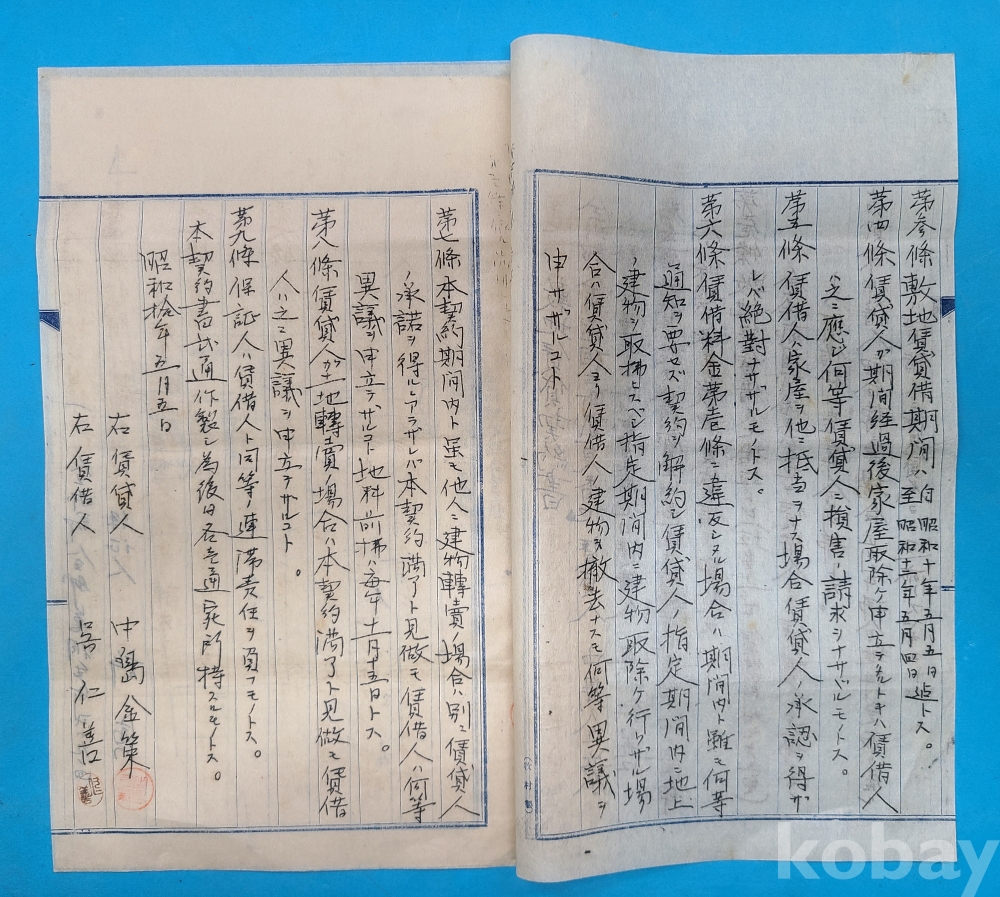 第参條敷地賃貸借期間ハ自昭和十年五月五日
至昭和十一年五月四日迠トス。
第四條賃貸人ガ期間経過後家屋取除ケ申立テタルトキハ賃借人
ハ之ニ應ジ何等賃貸人ニ損害ノ請求ヲナサザルモノトス。
第五條賃借人ハ家屋ヲ他ニ抵当ヲナス場合賃貸人ノ承認ヲ得ザ
レバ絶對ナサザルモノトス。
第六條賃借料金第壱條ニ違反シタル場合ハ期間内ト雖モ何等
通知ヲ要セズ契約ヲ解約シ賃貸人ノ指定期間内ニ地上
ノ建物ヲ取拂ヒスベシ指定期間内ニ建物取除ケ行ハザル場
合ハ賃貸人ヨリ賃借人ノ建物ヲ撤去ナスモ何等異議ヲ
申サザルコト
第七條本契約期間内ト虽モ他人ニ建物轉賣ノ場合ハ別ニ賃貸人
ノ承諾ヲ得ルニアラザレバ本契約満了ト見做モ賃借人ハ何等
異議ヲ申立テザルコト地料前拂ハ毎年十一月十五日トス。
第八條賃貸人ガ土地轉賣ノ場合ハ本契約満了ト見做モ賃借
人ハ之ニ異議ヲ申立テザルコト。
第九條保証人ハ賃借人ト同等ノ連滞責任ヲ負フモノトス。
本契約書弐通作製シ為後日各壱通宛所持スルモノトス。
昭和拾年五月五日
右賃貸人 中島金策
右賃借人 呂仁善
kobay